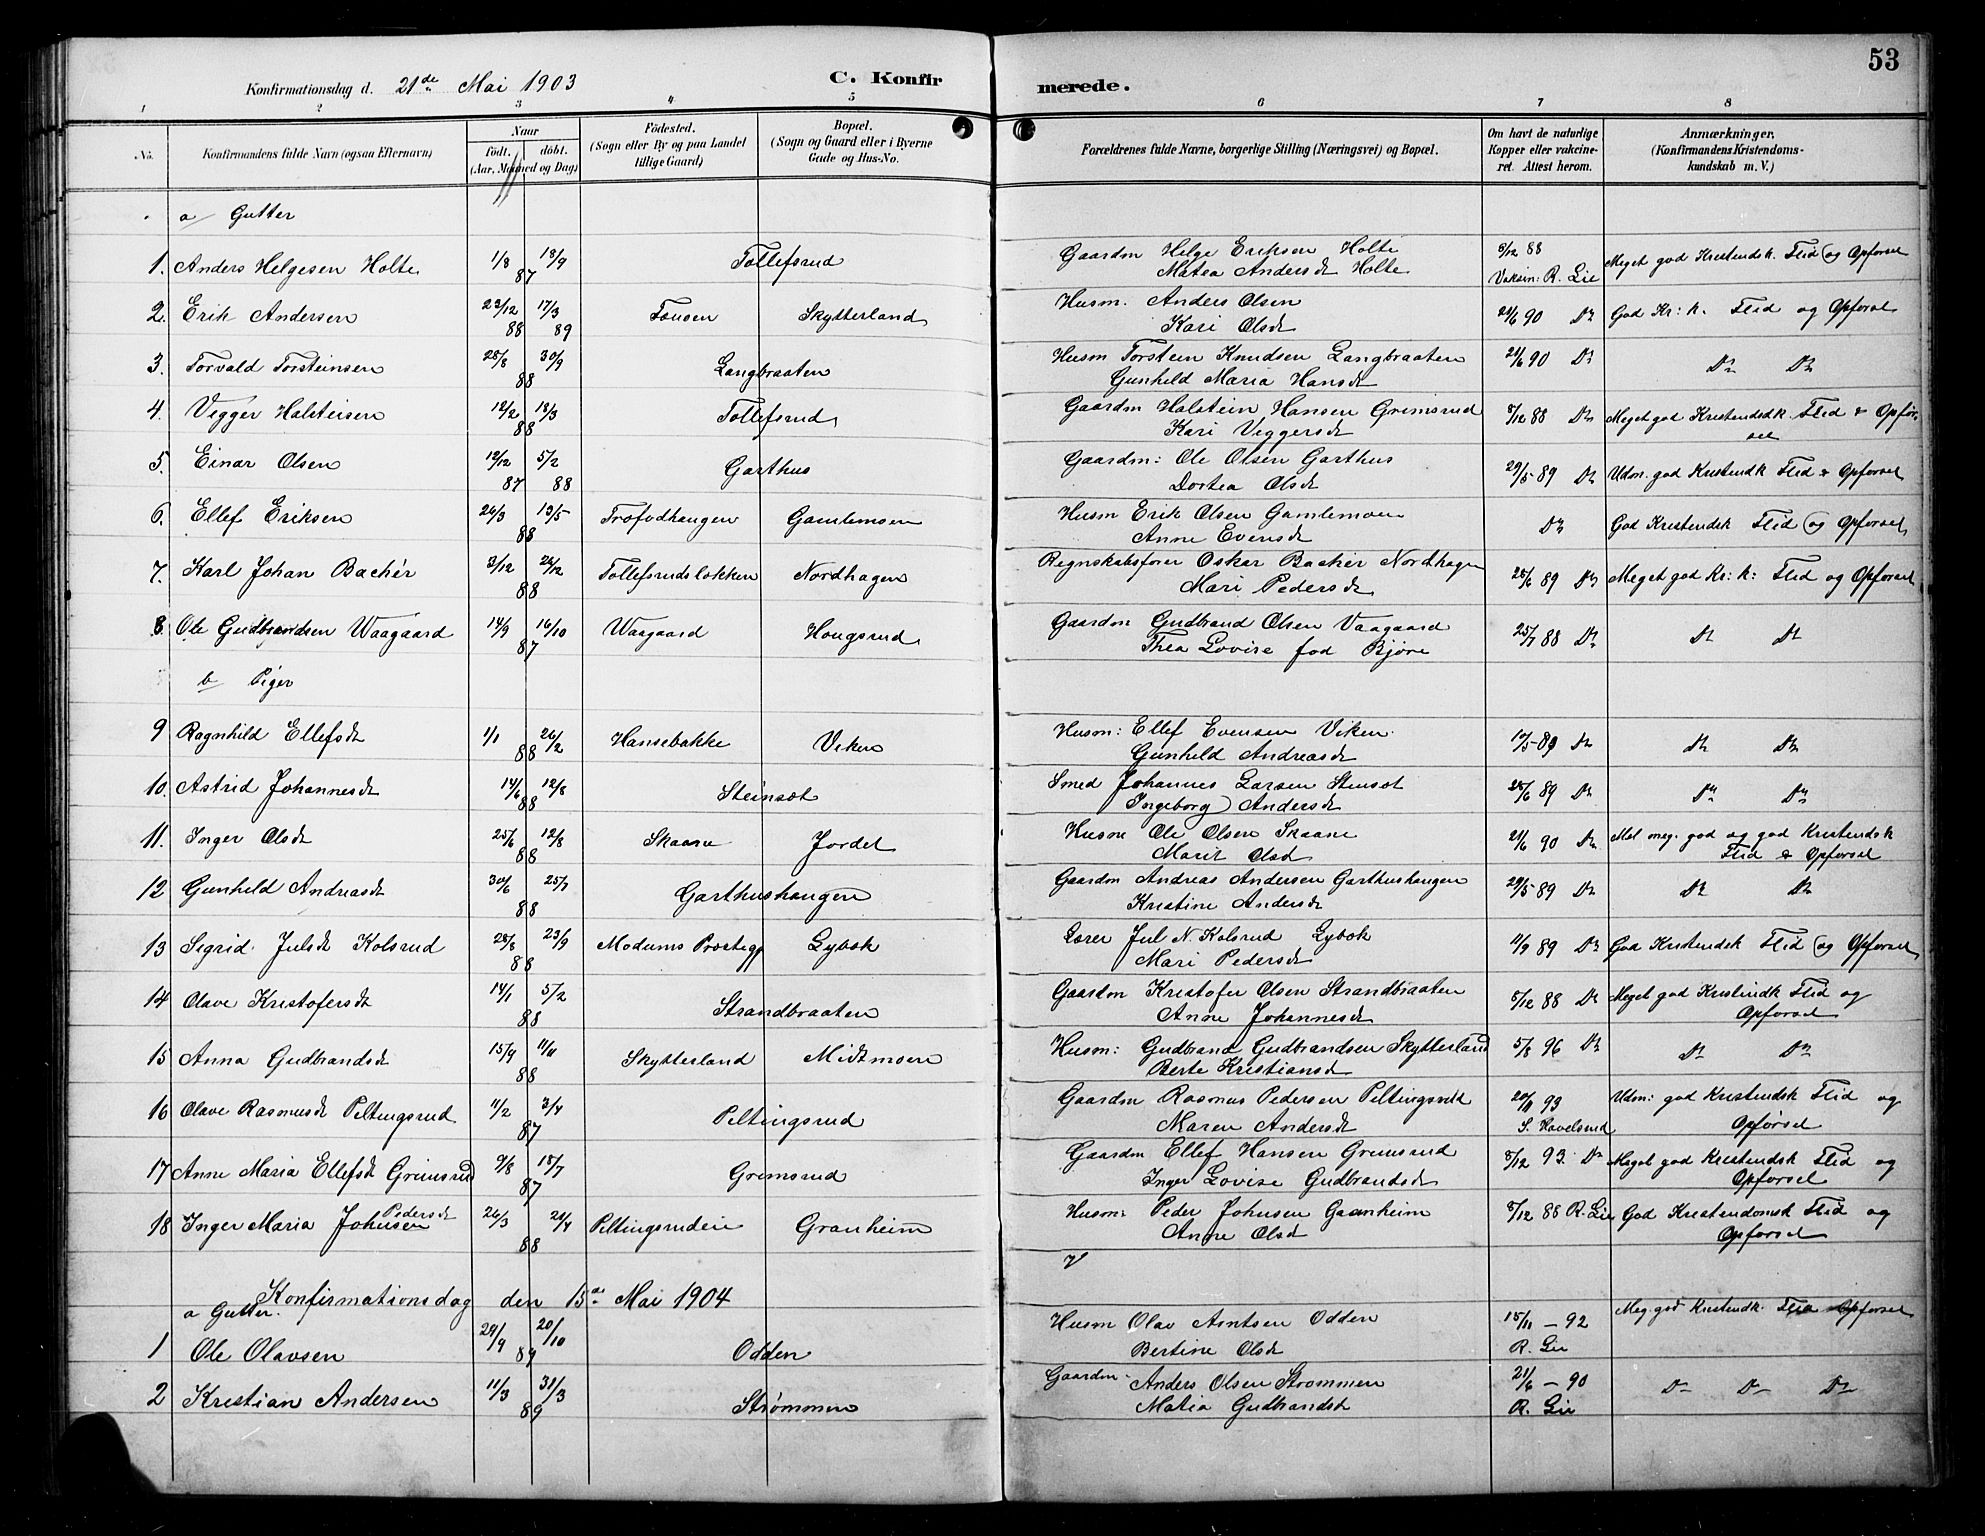 53
Konfirmationsdag d. 21de Mai 1903 C. Konfirmerede.
1 2 3 4 5 6 7 8
No. Konfirmandens fulde Navn (ogsaa Efternavn) Naar født. døbt. (Aar, Maaned og Dag) Fødested. (Sogn eller By og paa Landet tillige Gaard) Bopæl. (Sogn og Gaard eller i Byerne Gade og Hus-No. Forældrenes fulde Navne, borgerlige Stilling (Næringsvei) og Bopæl. Om havt de naturlige Kopper eller vakcineret. Attest herom. Anmærkninger, (Konfirmandens Kristendomskundskab m. V.)
a/ Gutter
1. Anders Helgesen Holte 1/8 13/9 87 Tollefsrud Gaardm Helge Eriksen Holte 5/12 88 Meget god Kristendsk. Flid og Opførsel
Matea Andersdt Holte Vaksin: R. Lie
2. Erik Andersen 23/12 88 17/3 89 Fousen Skytterland Husm. Anders Olsen 21/6 90 Do God Kr: k. Flid og Opførsel
Kari Olsdt
3. Torvald Torsteinsen 28/8 30/9 88 Langbraaten Husm Torstein Knudsen Langbraaten 21/6 90 Do Do Do
Gunhild Maria Hansdt
4. Vegger Halsteisen 12/2 18/3 88 Tollefsrud Gaardm Halstein Hansen Grimsrud 5/12 88 Do Meget god Kristendsdk Flid & Opførsel
Kari Veggersdt
5. Einar Olsen 12/12 87 5/2 88 Garthus Gaardm: Ole Olsen Garthus 29/5-89 Do Udm. god Kristendk Flid & Opførsel
Dortea Olsdt
6. Ellef Eriksen 24/3 13/5 88 Trøfodhaugen Gamlemoen Husm Erik Olsen Gamlemoen Do God Kristendsk Flid og Opførsel
Anne Evensdt
7. Karl Johan Bachér 3/12 26/12 88 Tollefsrudsløkken Nordhagen Regnskabsfører Oskar Bachér Nordhagen 25/6 89 Do Meget god Kr: k: Flid og Opførsel
Mari Pedersdt
8. Ole Gudbrandsen Waagaard 14/9 16/10 87 Waagaard Hougsrud Gaardm Gudbrand Olsen Vaagaard 25/7 88 Do Do Do
Thea Lovise fød Bjøre
b/ Piger
9 Ragnhild Ellefsdt 1/1 26/2 88 Hansebakke Viken Husm: Ellef Evensen Viken 17/5-89 Do Do Do
Gunhild Andreasdt
10. Astrid Johannesdt 14/6 12/8 88 Steinsæt Smed Johannes Larsen Stensæt 25/6 89 Do Do Do
Ingeborg Andersdt
11. Inger Olsdt 25/6 12/8 88 Skaane Jordet Husm Ole Olsen Skaane 21/6 90 Do Mel. meg. god og god Kristendsk
Marit Olsd Flid & Opførsel
12 Gunhild Andreasdt 30/6 25/7 88 Garthushaugen Gaardm Andreas Andersen Garthushaugen 29/5 89 Do Do Do
Kristine Andersdt
13 Sigrid Julsdt Kolsrud 28/8 23/9 88 Modums Prestegj Lybæk Lærer Jul N. Kolsrud Lybæk 11/9 89 Do God Kristendsk Flid og Opførsel
Mari Pedersdt
14 Olave Kristofersdt 14/1 5/2 88 Strandbraaten Gaardm Kristofer Olsen Strandbraaten 5/12 88 Do Meget god Kristendk Flid og
Anne Johannesdt Opførsel
15 Anna Gudbrandsdt 15/9 11/11 88 Skytterland Midtmoen Husm: Gudbrand Gudbrandsen Skytterland 5/8 96 Do Do Do
Berte Kristiansdt
16 Olave Rasmusdt Peltingsrud 11/2 3/4 87 Peltingsrud Gaardm Rasmus Pedersen Peltingsrud 20/11 93 Udm: god Kristendsk Flid og
Maren Andersdt S. Havelsrud Opførsel
17 Anne Maria Ellefsdt Grimsrud 9/8 18/7 87 Grimsrud Gaardm Ellef Hansen Grimsrud 5/12 93. Do Meget god Kristendsk Flid og
Inger Lovise Gudbrandsdt Opførsel
18 Inger Maria Pedersdt Johnsen 26/3 21/4 88 Peltingsrudeie Granheim Husm: Peder Johnsen Granheim 5/12 88 R. Lie God Kristendomsk Flid og
Anne Olsd Opførsel
Konfirmationsdag den 15de Mai 1904
a Gutter.
1 Ole Olavsen 29/9 20/10 89 Odden Husm Olav Arntsen Odden 15/11 - 92 Meg. god Kristendk. Flid Opførsel
Bertine Olsdt R. Lie
2 Kristian Andersen 11/3 31/3 89 Strømmen Gaardm Anders Olsen Strømmen 21/6 - 90 Do Do Do
Matia Gudbrandsdt R. Lie